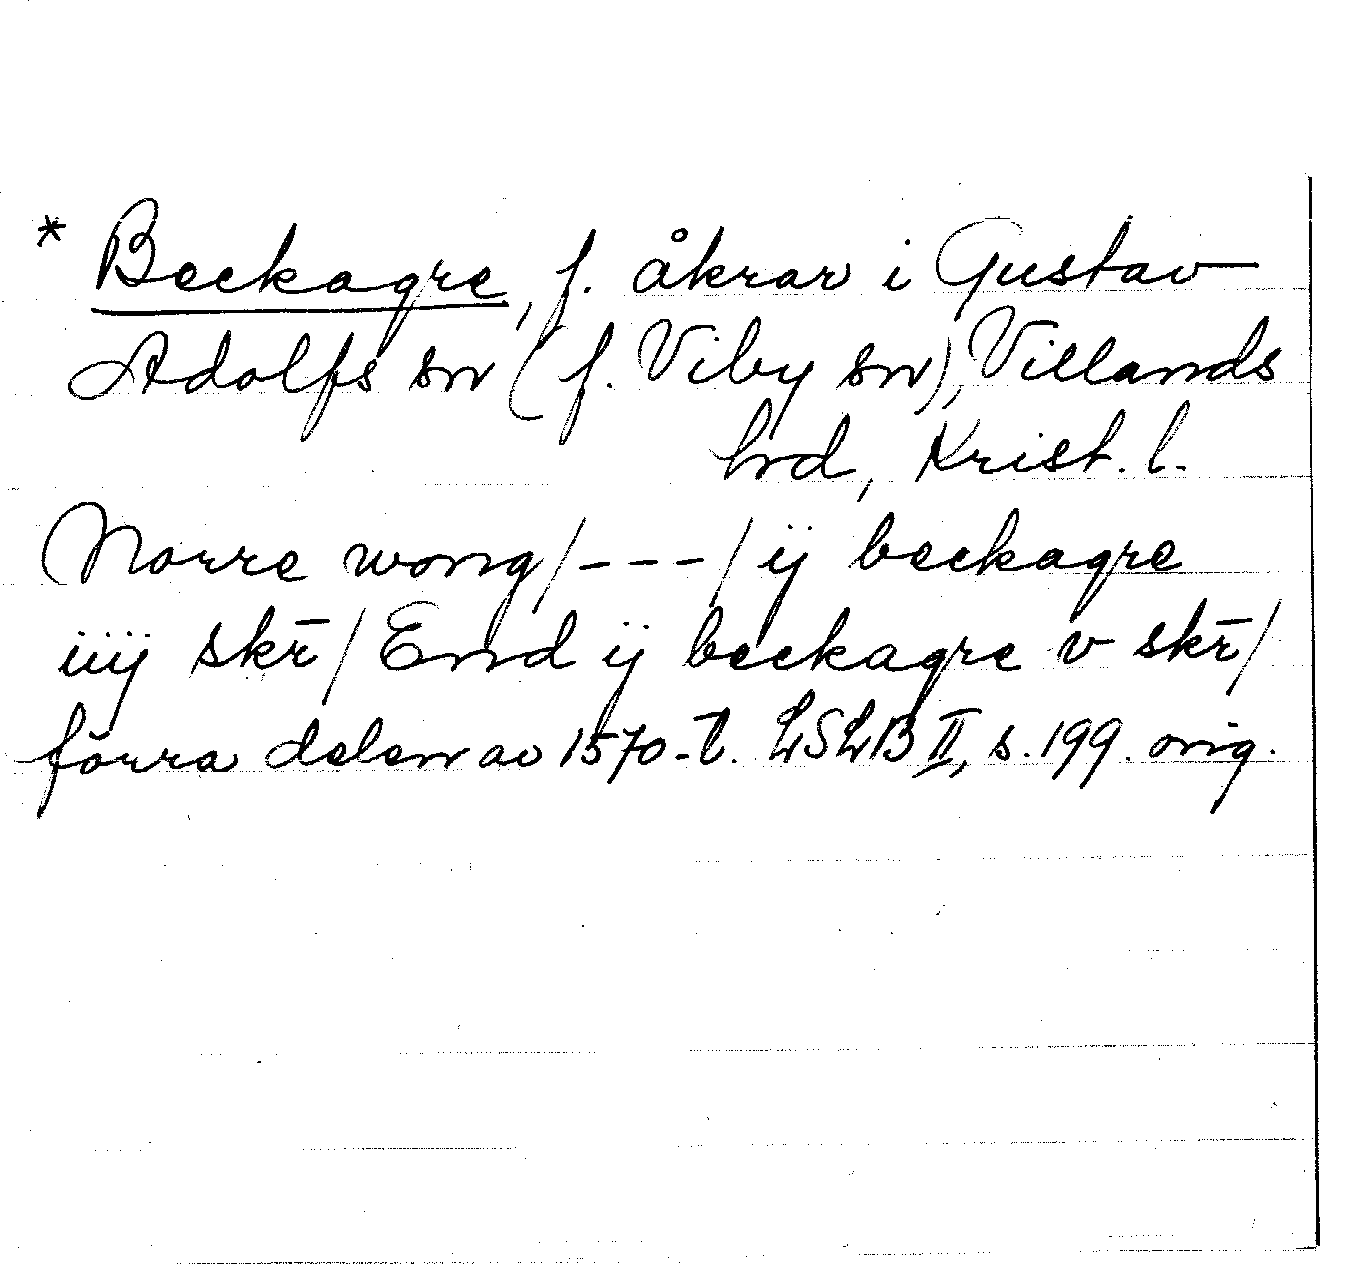 * Beckagre, f. åkrar i Gustav
Adolfs sn (f. Viby sn), Villands
hrd, Krist. l.
Norre wong/---/ ij beckagre
iiij skr̄/ End ij beckagre v skr̄/
förra delen av 1570-t. LSLB II, s. 199. orig.